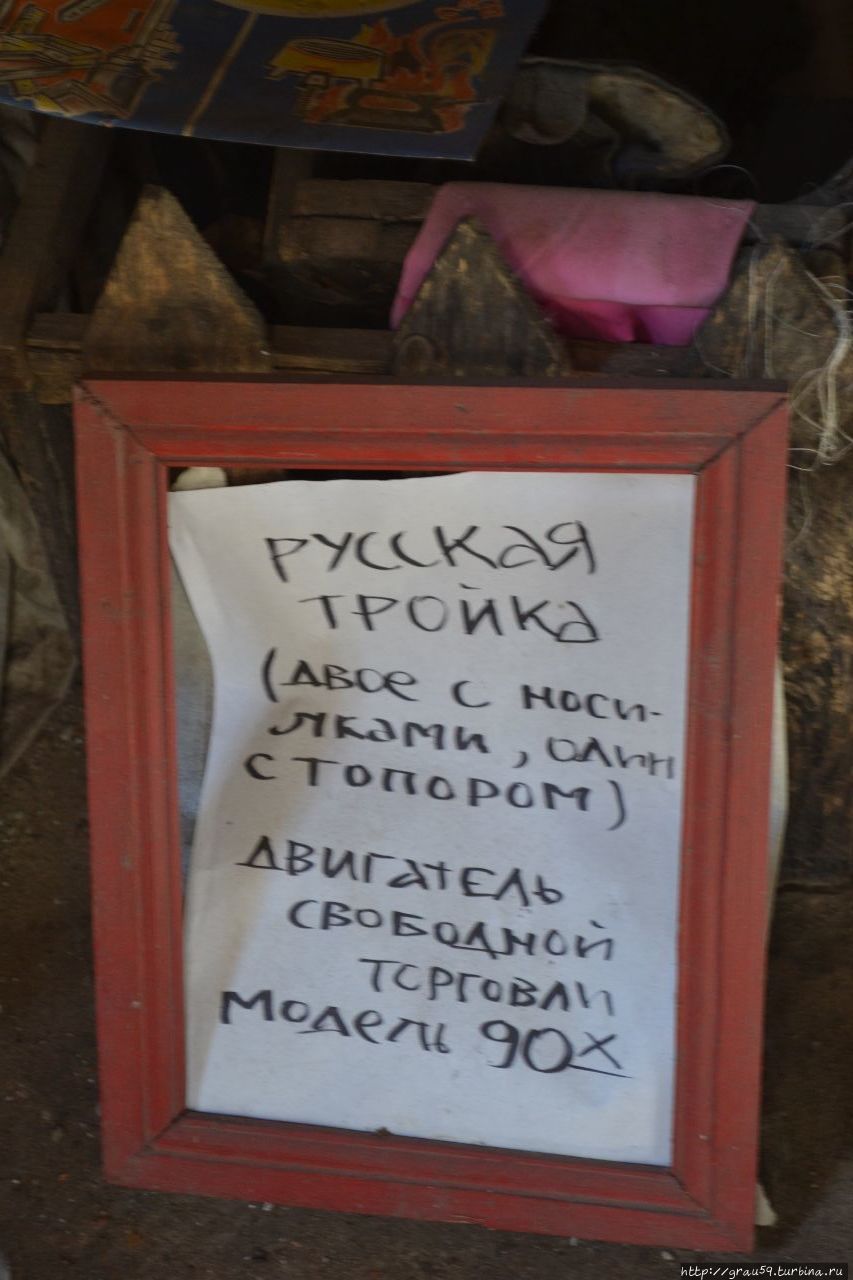 РУССКАЯ
ТРОЙКА
(ДВОЕ С НОСИ-
ЛКАМИ, ОДИН
С ТОПОРОМ)
ДВИГАТЕЛЬ
СВОБОДНОЙ
ТОРГОВЛИ
МОДЕЛИ 90Х
http://grau59.turbina.ru